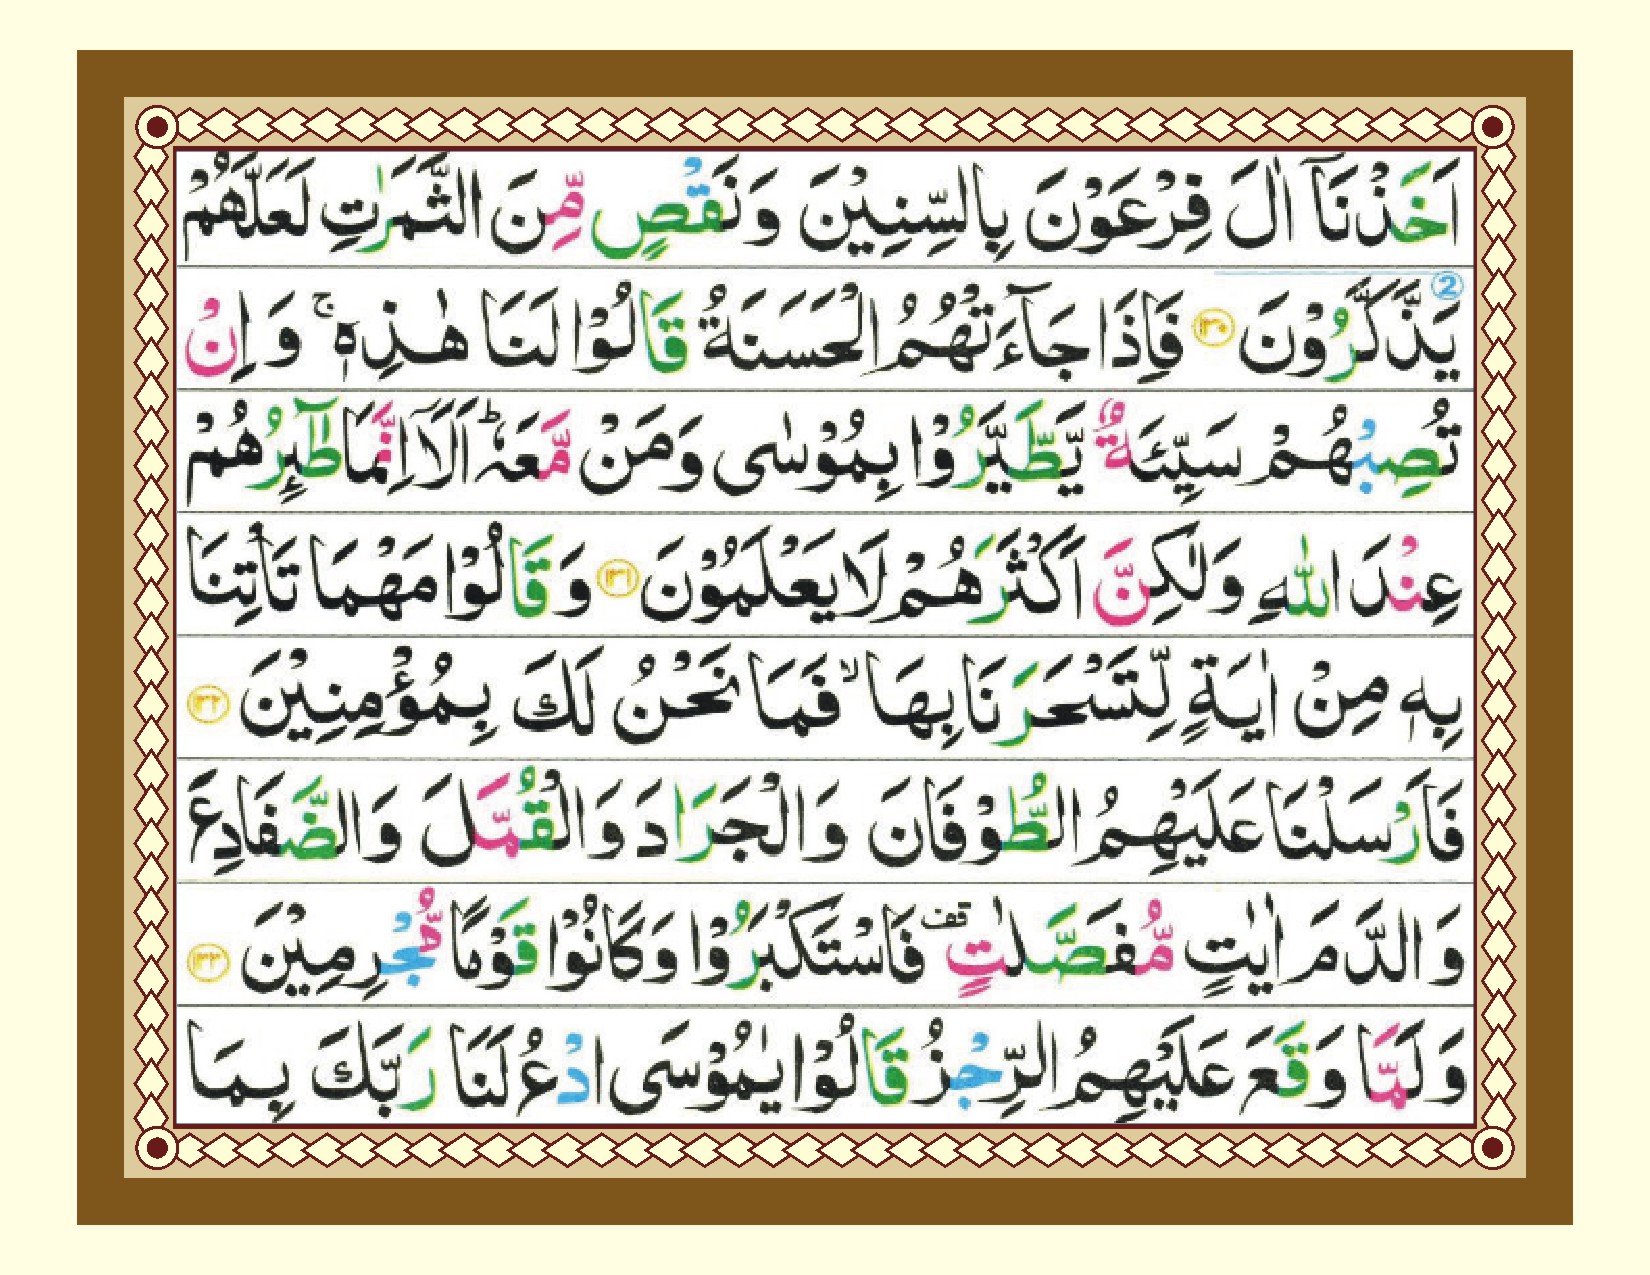 اَخَذْنَاۤ اٰلَ فِرْعَوْنَ بِالسِّنِيْنَ وَنَقْصٍ مِّنَ الثَّمَرٰتِ لَعَلَّهُمْ
2
يَذَّكَّرُوْنَ ﴿۱۳۰﴾ فَاِذَا جَآءَتْهُمُ الْحَسَنَةُ قَالُوْا لَنَا هٰذِهٖ ۚ وَ اِنْ
تُصِبْهُمْ سَيِّئَةٌ يَّطَّيَّرُوْا بِمُوْسٰى وَمَنْ مَّعَهٗ ؕ اَلَاۤ اِنَّمَا طٰٓئِرُهُمْ
عِنْدَ اللّٰهِ وَلٰكِنَّ اَكْثَرَهُمْ لَا يَعْلَمُوْنَ ﴿۱۳۱﴾ وَ قَالُوْا مَهْمَا تَاْتِنَا
بِهٖ مِنْ اٰيَةٍ لِّتَسْحَرَنَا بِهَا ۙ فَمَا نَحْنُ لَكَ بِمُؤْمِنِيْنَ ﴿۱۳۲﴾
فَاَرْسَلْنَا عَلَيْهِمُ الطُّوْفَانَ وَالْجَرَادَ وَالْقُمَّلَ وَالضَّفَادِعَ
وَالدَّمَ اٰيٰتٍ مُّفَصَّلٰتٍ قف فَاسْتَكْبَرُوْا وَكَانُوْا قَوْمًا مُّجْرِمِيْنَ ﴿۱۳۳﴾
وَلَمَّا وَقَعَ عَلَيْهِمُ الرِّجْزُ قَالُوْا يٰمُوْسَى ادْعُ لَنَا رَبَّكَ بِمَا